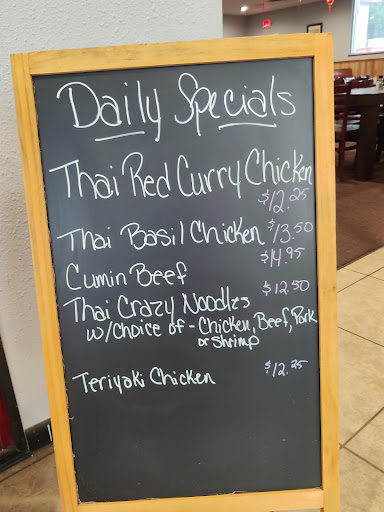 Daily Specials
Thai Red Curry Chicken
$12.25
Thai Basil Chicken $13.50
Cumin Beef $14.95
Thai Crazy Noodles $12.50
w/choice of - Chicken, Beef, Pork
or Shrimp
Teriyaki Chicken $12.25